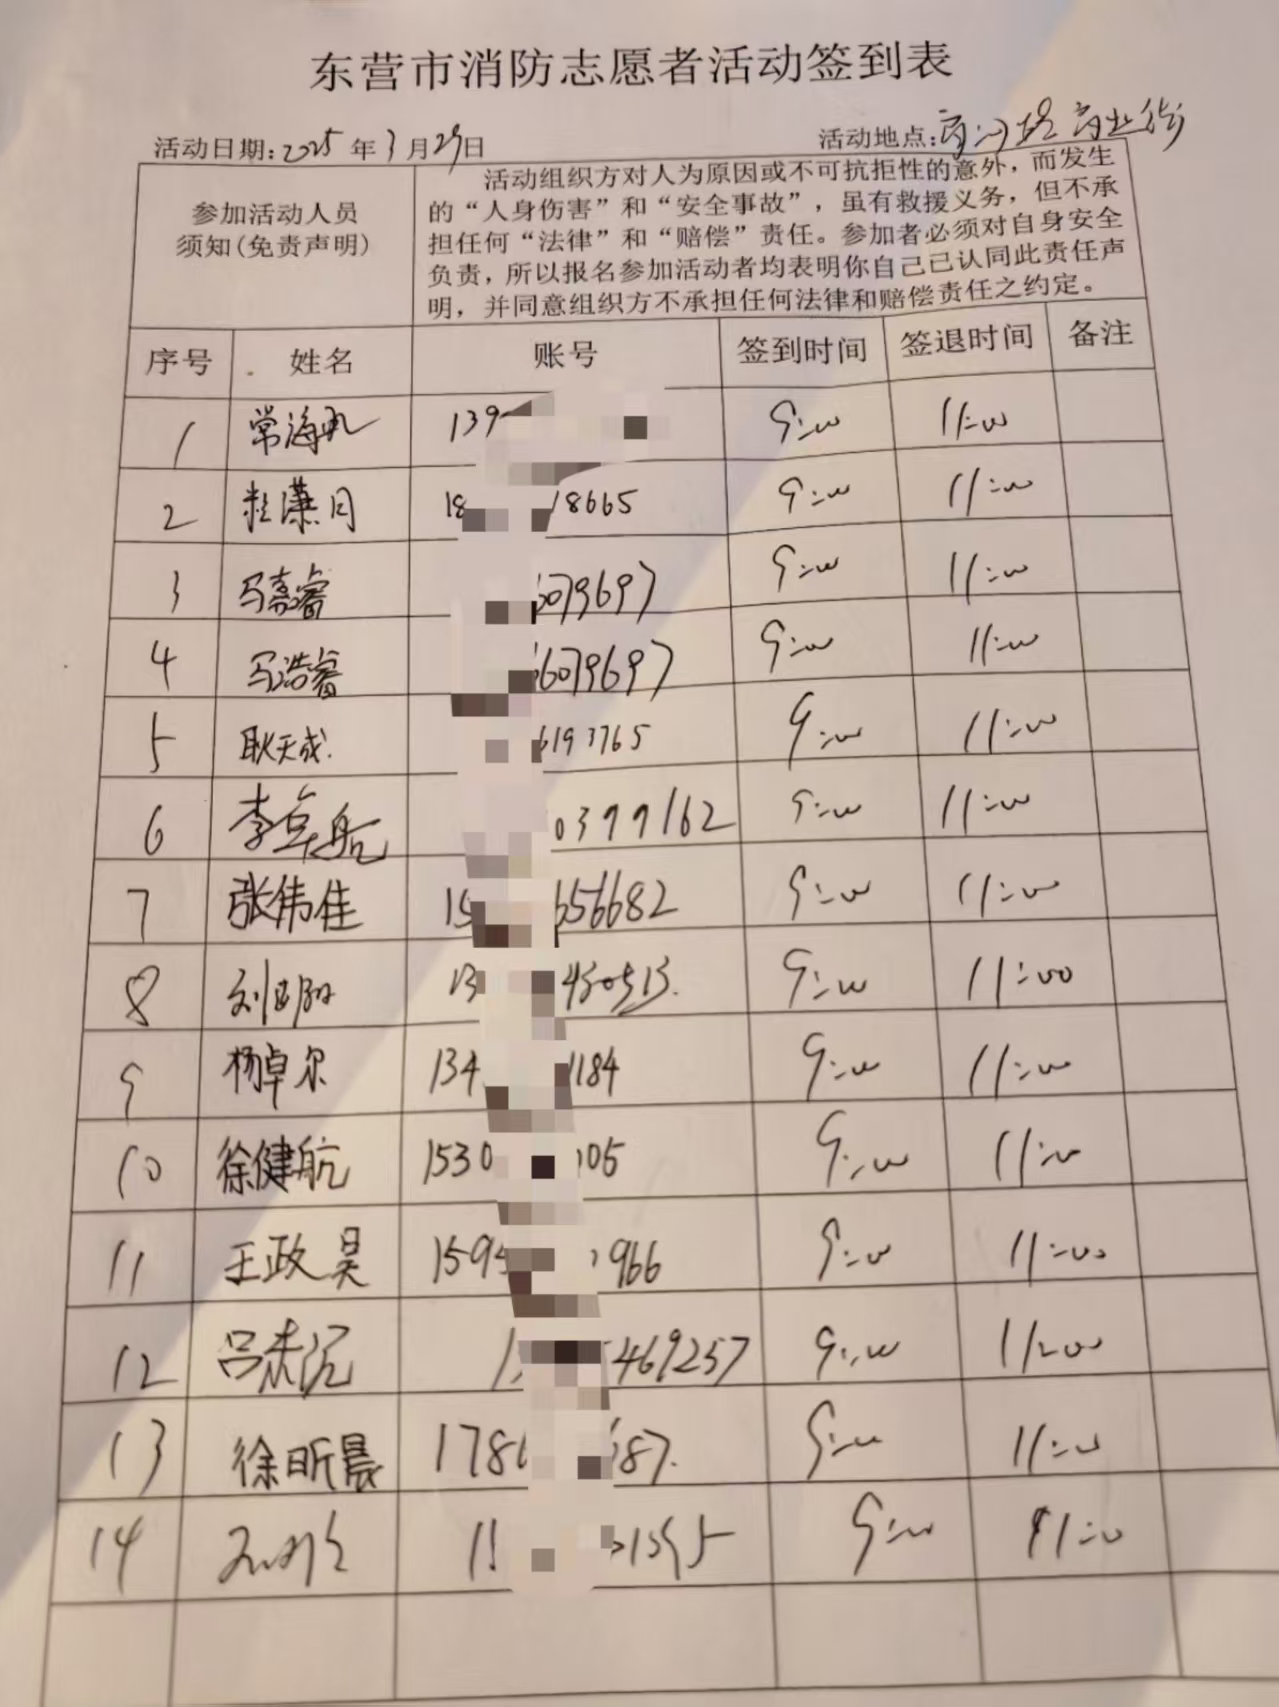 东营市消防志愿者活动签到表
活动日期:2025年3月29日 活动地点: 商业街
参加活动人员
须知(免责声明)
活动组织方对人为原因或不可抗拒性的意外，而发生
的“人身伤害”和“安全事故”，虽有救援义务，但不承
担任何“法律”和“赔偿”责任。参加者必须对自身安全
负责，所以报名参加活动者均表明你自己已认同此责任声
明，并同意组织方不承担任何法律和赔偿责任之约定。
序号 姓名 账号 签到时间 签退时间 备注
1 常海 139 9:00 11:00
2 月 18 18665 9:00 11:00
3 马嘉睿 6079697 9:00 11:00
4 马浩睿 6079697 9:00 11:00
5 耿天成. 6193765 9:00 11:00
6 李卓航 0399162 9:00 11:00
7 张伟佳 15 656682 9:00 11:00
8 刘 13 430513. 9:00 11:00
9 杨卓尔 134 1184 9:00 11:00
10 徐健航 1530 05 9:00 11:00
11 王政昊 1595 966 9:00 11:00
12 吕 1 469257 9:00 11:00
13 徐昕晨 1786 687. 9:00 11:00
14 1 1395 9:00 11:00